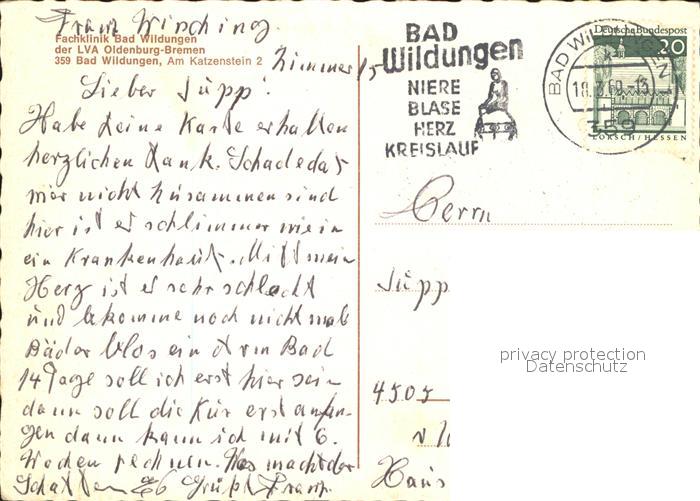 Franz Wirsching.
Fachklinik Bad Wildungen
der LVA Oldenburg-Bremen
359 Bad Wildungen, Am Katzenstein 2
Zimmer 15
Lieber Jupp!
Habe deine Karte erhalten
herzlichen Dank. Schade das
wir nicht zusammen sind
hier ist es schlimmer wie in
ein Krankenhaus. Mit mein
Herz ist es sehr schlecht
und bekomme noch nicht mal
Bäder blos ein Arm Bad
14 Tage soll ich erst hier sein
dann soll die Kur erst anfan-
gen dann kann ich mit 6.
Wochen rechnen. Was macht der
Schalten Grüße Franz.
BAD
Wildungen
NIERE
BLASE
HERZ
KREISLAUF
BAD WILDUNGEN
18.3.69-13
359
Deutsche Bundespost
20
LORSCH/HESSEN
Herrn
Jupp
privacy protection
Datenschutz
4505
Haus